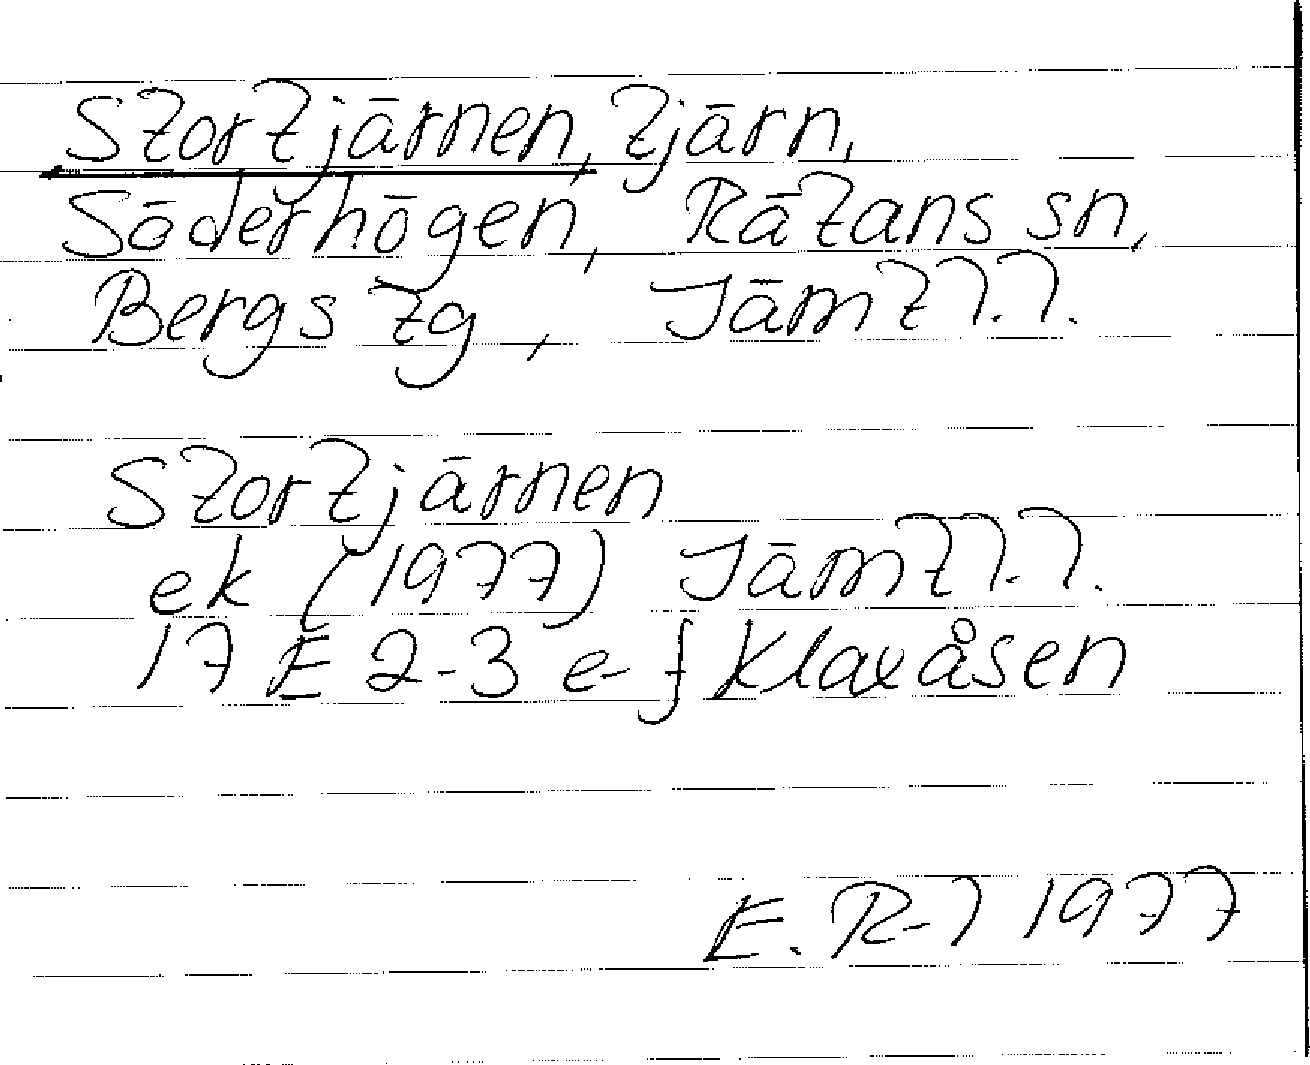 Stortjärnen, tjärn,
Söderhögen, Rätans sn,
Bergs tg, Jämtl.l.
Stortjärnen
ek (1977) Jämtl.l.
17 E 2-3 e-f Klaxåsen
E. R-l 1977